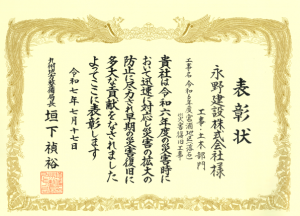 表彰状
工事・土木部門
永野建設株式会社様
工事名 令和6年度宮浦地区(落石)
災害復旧工事
貴社は令和六年度の災害時に
おいて迅速に対応し災害の拡大の
防止に尽力され早期の災害復旧に
多大な貢献をなされました
よってここに表彰します
令和七年七月十七日
九州地方整備局長
垣下禎裕